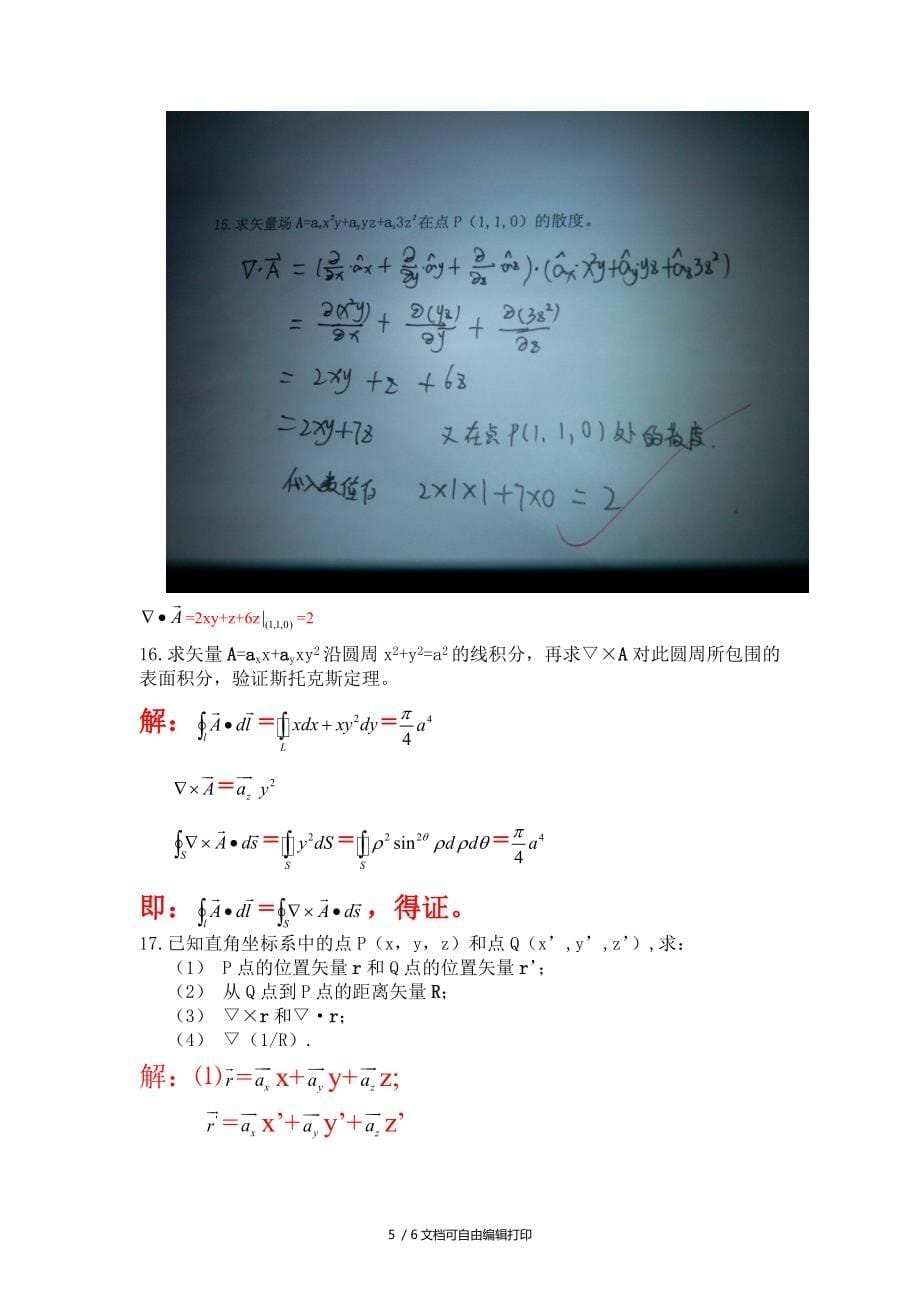 15.求矢量场 A=aₓx²y+a_yyz+a_z3z²在点 P（1,1,0）的散度。
∇·A⃗ = (∂/∂x·âx + ∂/∂y·ây + ∂/∂z·âz)·(âx·x²y+ây·yz+âz3z²)
= ∂(x²y)/∂x + ∂(yz)/∂y + ∂(3z²)/∂z
= 2xy + z + 6z
=2xy+7z 又在点P(1,1,0)处的散度.
代入数值有 2×1×1+7×0=2
∇•A⃗=2xy+z+6z|(1,1,0)=2
16.求矢量 A=aₓx+a_yxy²沿圆周 x²+y²=a²的线积分，再求▽×A 对此圆周所包围的
表面积分，验证斯托克斯定理。
解：∮l A⃗•dl⃗=∮L xdx+xy²dy=π/4 a⁴
∇×A⃗=a⃗z y²
∮S ∇×A⃗•ds⃗=∮S y²dS=∮S ρ² sin²θ ρdρdθ=π/4 a⁴
即：∮l A⃗•dl⃗=∮S ∇×A⃗•ds⃗，得证。
17.已知直角坐标系中的点 P（x，y，z）和点 Q（x’,y’,z’）,求：
（1） P 点的位置矢量 r 和 Q 点的位置矢量 r’；
（2） 从 Q 点到 P 点的距离矢量 R；
（3） ▽×r 和▽·r；
（4） ▽（1/R）.
解：⑴r⃗=a⃗x x+a⃗y y+a⃗z z;
r⃗'=a⃗x x’+a⃗y y’+a⃗z z’
5 / 6文档可自由编辑打印